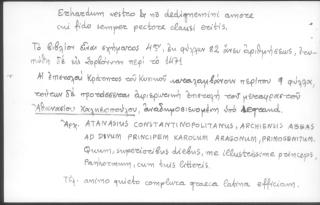 Erhardum vestro & nō dedignemini amore
cui fido semper pectore clausi eritis.
Τὸ βιβλίον εἶναι σχήματος 4ου, ἐκ φύλλων 82 ἄνευ ἀριθμήσεως, ἐτυ-
πώθη δὲ εἰς Σορβόννην περὶ τὸ 1471
Αἱ ἐπιστολαὶ Κράτητος τοῦ Κυνικοῦ καταλαμβάνουν περίπου 9 φύλλα,
τούτων δὲ προτάσσεται ἀφιερωτικὴ ἐπιστολὴ τοῦ μεταφραστοῦ
Ἀθανασίου Χαλκεοπούλου, ἀναδημοσιευομένη ὑπὸ Legrand.
Ἀρχ. ATANASIUS CONSTANTINOPOLITANUS, ARCHIENSIS ABBAS
AD DIVUM PRINCIPEM KAROLUM ARAGONUM, PRIMOGENITUM.
Quum, superioribus diebus, me illustrissime princeps,
Panhormum, cum tuis litteris.
Τελ. animo quieto complura graeca latina efficiam.